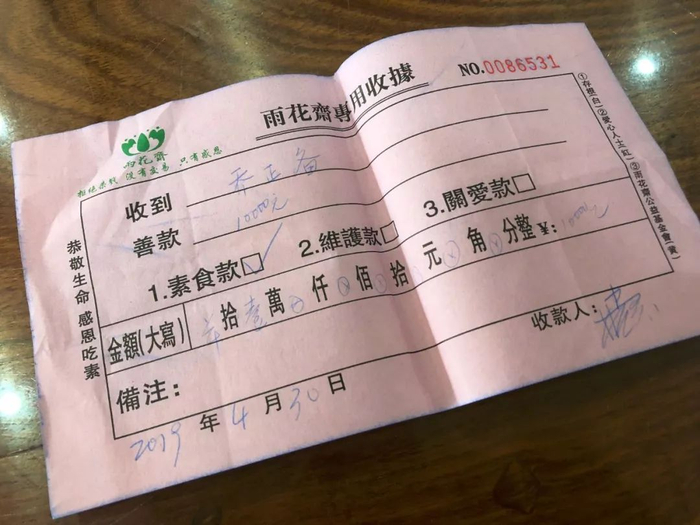 雨花齋專用收據
NO.0086531
雨花齋
拒絕殺戮 沒有交易 只有感恩
收到
善款 10000元
1.素食款☑ 2.維護款□ 3.關愛款□
金額(大寫) 拾壹萬⊗仟⊗佰⊗拾⊗元⊗角⊗分整¥:10000元
備注:
收款人:
2019年4月30日
恭敬生命 感恩吃素
①存根(白)②愛心人士(紅)③雨花齋公益基金會(黃)